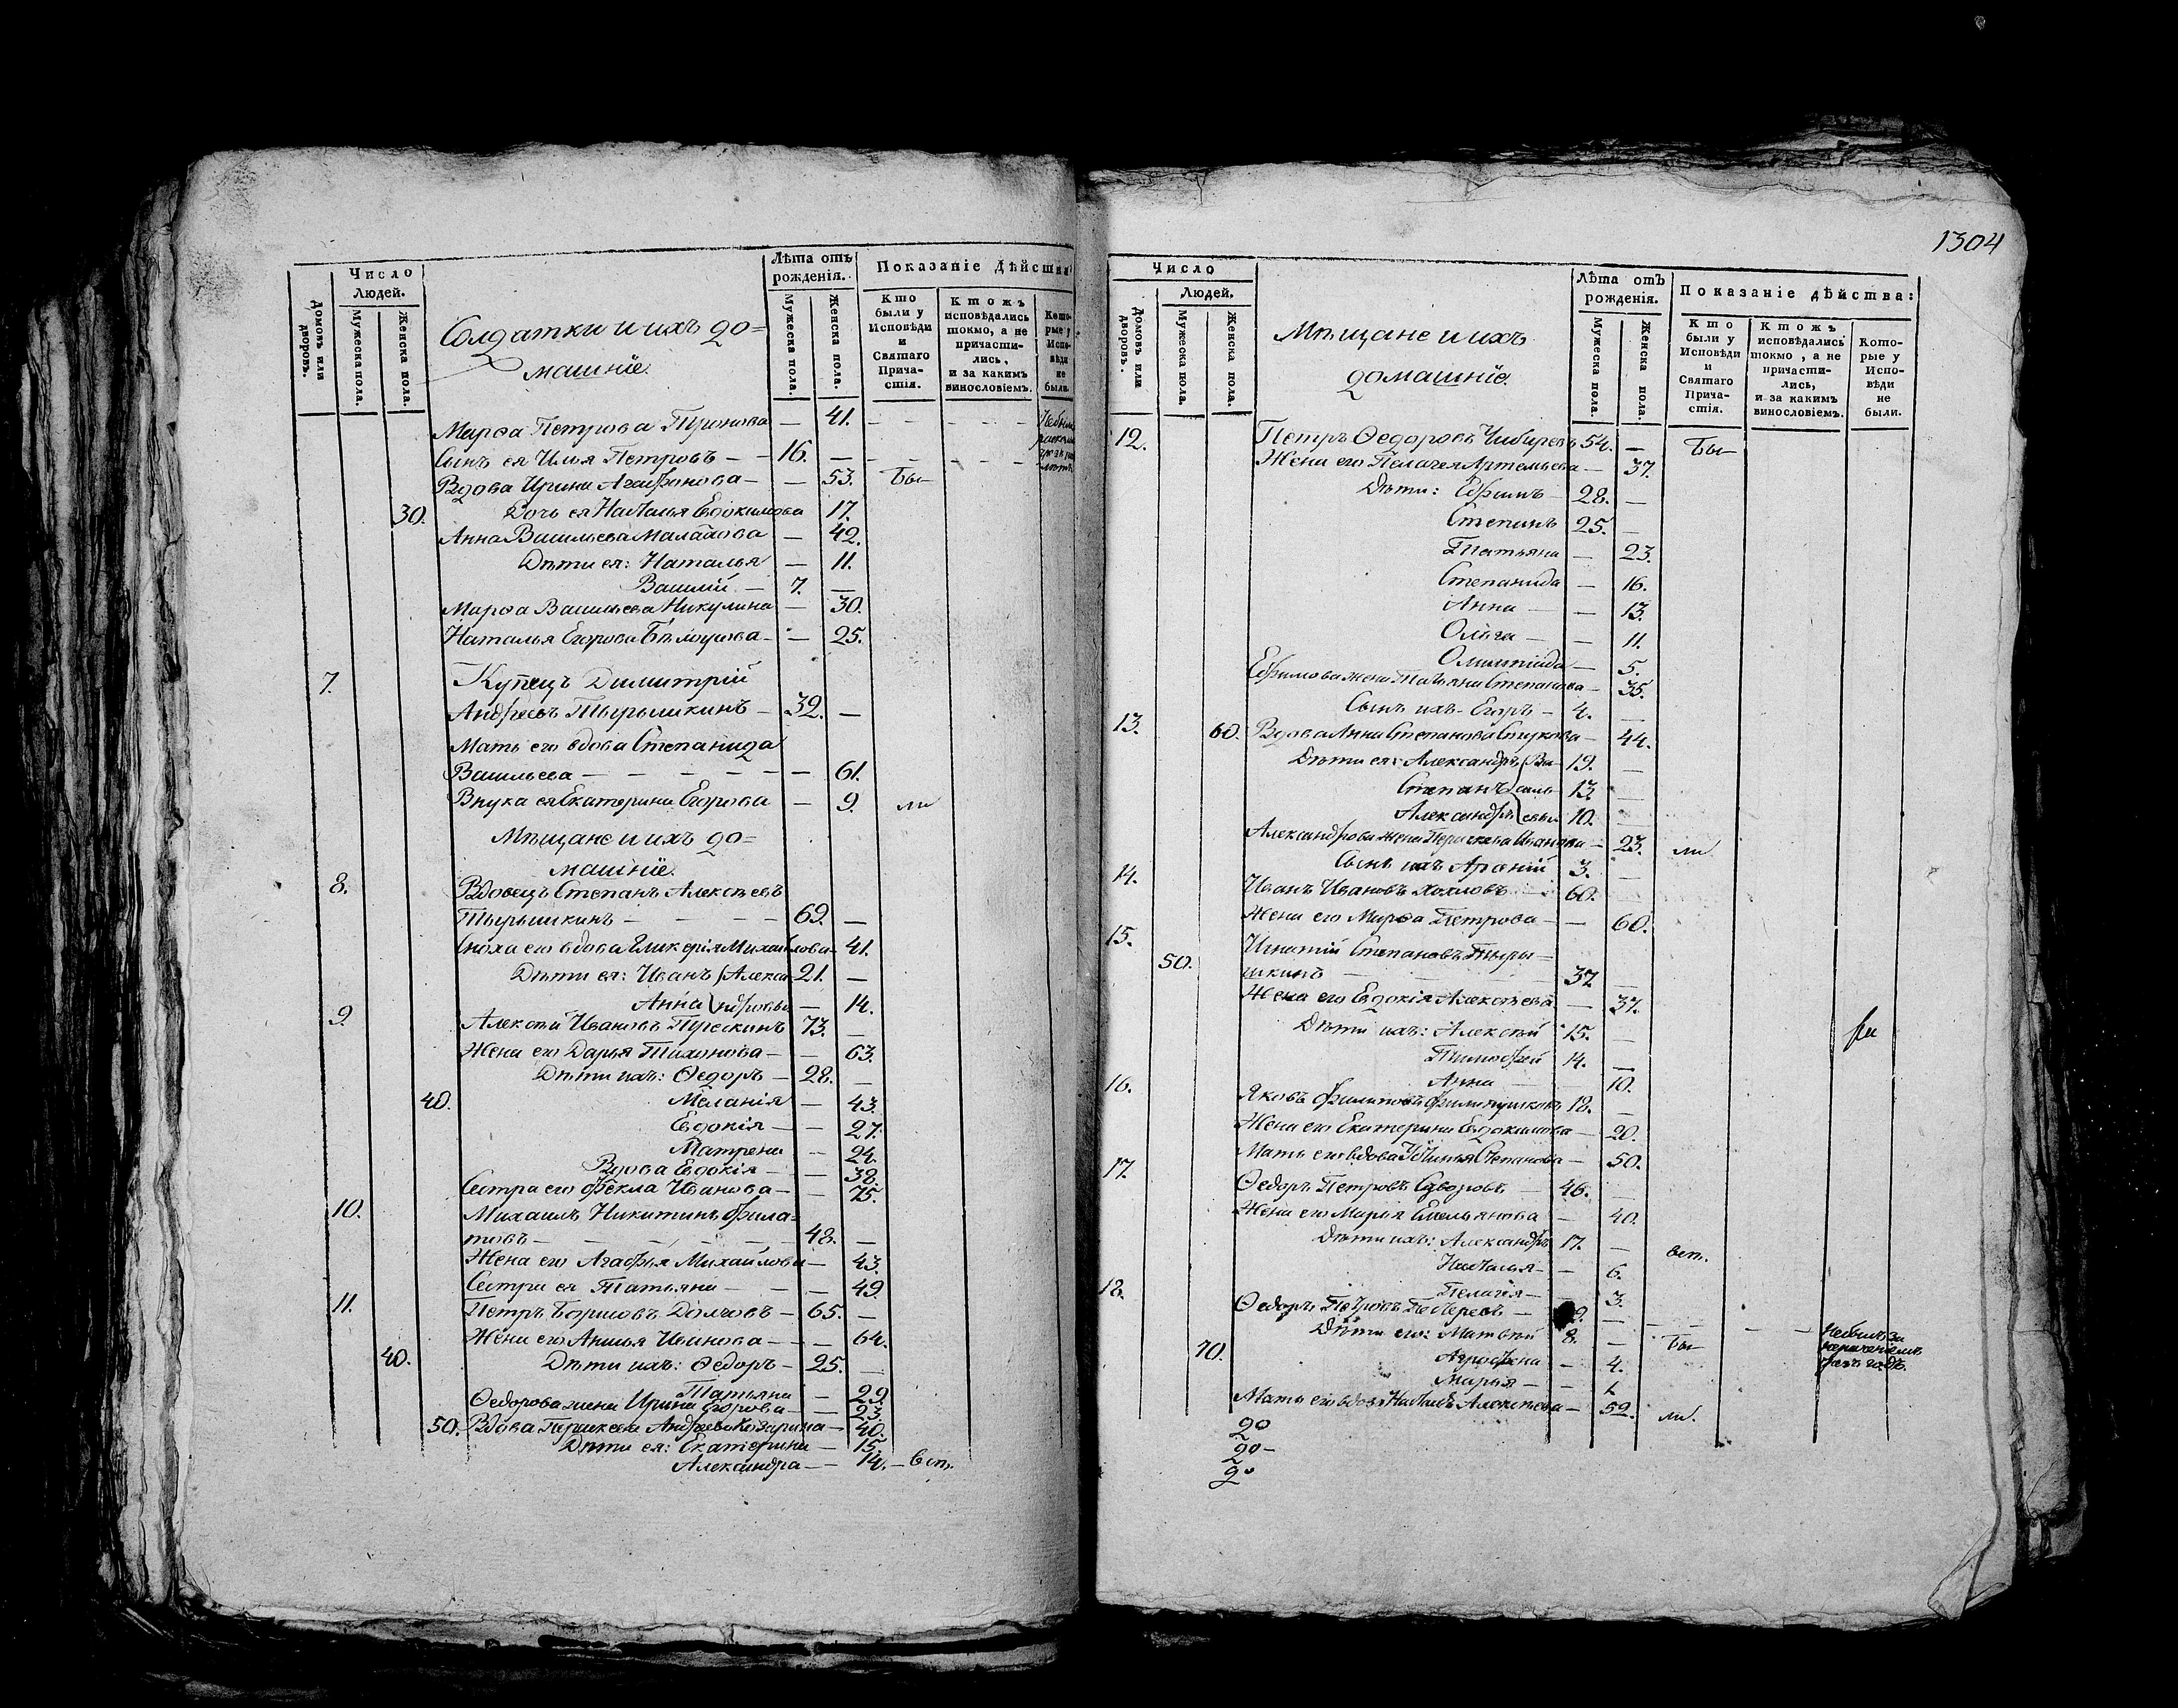 Число
Людей.
Домовъ или дворовъ.
Мужеска пола.
Женска пола.
Солдатки и ихъ до=
машніе.
Лѣта отъ
рожденія.
Мужеска пола.
Женска пола.
Показаніе дѣйства:
Кто были у Исповѣди и Святаго Прича-стія.
Ктожъ исповѣдались токмо, а не причасти-лись, и за какимъ винословіемъ.
Кото-рые у Испо-вѣди не были.
Марѳа Петрова Тронова — 41. – – – – –
Сынъ ея Илья Петровъ – – 16. – – – – –
Вдова Ирина Агафонова – – 53. Бы–
30. Дочь ея Наталья Евдокимова 17.
Анна Васильева Малахова – 42.
Дѣти ея: Наталья – 11.
Василій – 7. –
Марѳа Васильева Никулина – 30.
Наталья Егорова Бѣлоусова – – 25.
7. Купецъ Димитрій
Андреевъ Тырышкинъ – 32. –
Мать его вдова Степанида
Васильева – – – – – – 61.
Внука ея Екатерина Егорова – 9. ли
Мѣщане и ихъ до=
машніе.
8. Вдовецъ Степанъ Алексѣевъ
Тырышкинъ – – – – 69. –
Сноха его вдова Гликерія Михайлова – 41.
Дѣти ея: Иванъ Алекса– 21. –
Анна ндровы – 14.
9. Алексѣй Ивановъ 73. –
Жена его Дарья Тихонова – – 63.
Дѣти ихъ: Ѳедоръ – 28. –
40. Меланія – 43.
Евдокія – – 27.
Матрена – 24.
Вдова Евдокія – – 38.
Сестра его Фекла Иванова – – 75.
10. Михаилъ Никитинъ Фила=
товъ – – – – – 48. –
Жена его Агафья Михайлова – 43.
Сестра ея Татьяна – – – 49.
11. Петръ Борисовъ Долговъ – 65. –
Жена его Анисья Иванова – – – 64.
40. Дѣти ихъ: Ѳедоръ – 25. –
Татьяна – 29.
Ѳедорова жена Ирина Егорова – – 23.
50. Вдова Параскева Андреева – 40.
Дѣти ея: Екатерина – 15.
Александра – – 14. – вст.
1304
Число
Людей.
Домовъ или дворовъ.
Мужеска пола.
Женска пола.
Мѣщане и ихъ
домашніе.
Лѣта отъ
рожденія.
Мужеска пола.
Женска пола.
Показаніе дѣйства:
Кто были у Исповѣди и Святаго Прича-стія.
Ктожъ исповѣдались токмо, а не причасти-лись, и за какимъ винословіемъ.
Кото-рые у Испо-вѣди не были.
12. Петръ Ѳедоровъ Чибиревъ 54. – Бы–
Жена его Пелагея Артемьева – 37.
Дѣти: Ефимъ – 28. –
Степанъ 25. –
Татьяна – 23.
Степанида – 16.
Анна – – 13.
Ольга – – 11.
Олимпіада – 5.
Ефимова жена Татьяна Степанова – 35.
Сынъ ихъ Егоръ – 4. –
13. 60. Вдова Анна Степанова – 44.
Дѣти ея: Александръ Ва– 19. –
Степанъ силь– 13. –
Александръ евы 10. –
Александрова жена Параскева Иванова – 23. ли
Сынъ ихъ 3. –
14. Иванъ Ивановъ Хохловъ – 60. –
Жена его Марѳа Петрова – – 60.
15. Игнатій Степановъ Тыры=
50. шкинъ – 37 –
Жена его Евдокія Алексѣева – 37.
Дѣти ихъ: Алексѣй 15. –
Тимофей 14. –
Анна – – 10.
16. Яковъ Филиповъ 18. –
Жена его Екатерина Евдокимова – 20.
Мать его вдова Степанова – 50.
17. Ѳедоръ Петровъ – 46. –
Жена его Марья Емельянова – 40.
Дѣти ихъ: Александръ 17. – вст.
Наталья – – 6.
Пелагія – – 3.
18. Ѳедоръ Петровъ – 9. – – – –
Дѣти его: Матвѣй 8. – Бы–
70. Агрофена – 4.
Марья – – 1.
Мать его вдова Наталья Алексѣева – 52. ли.